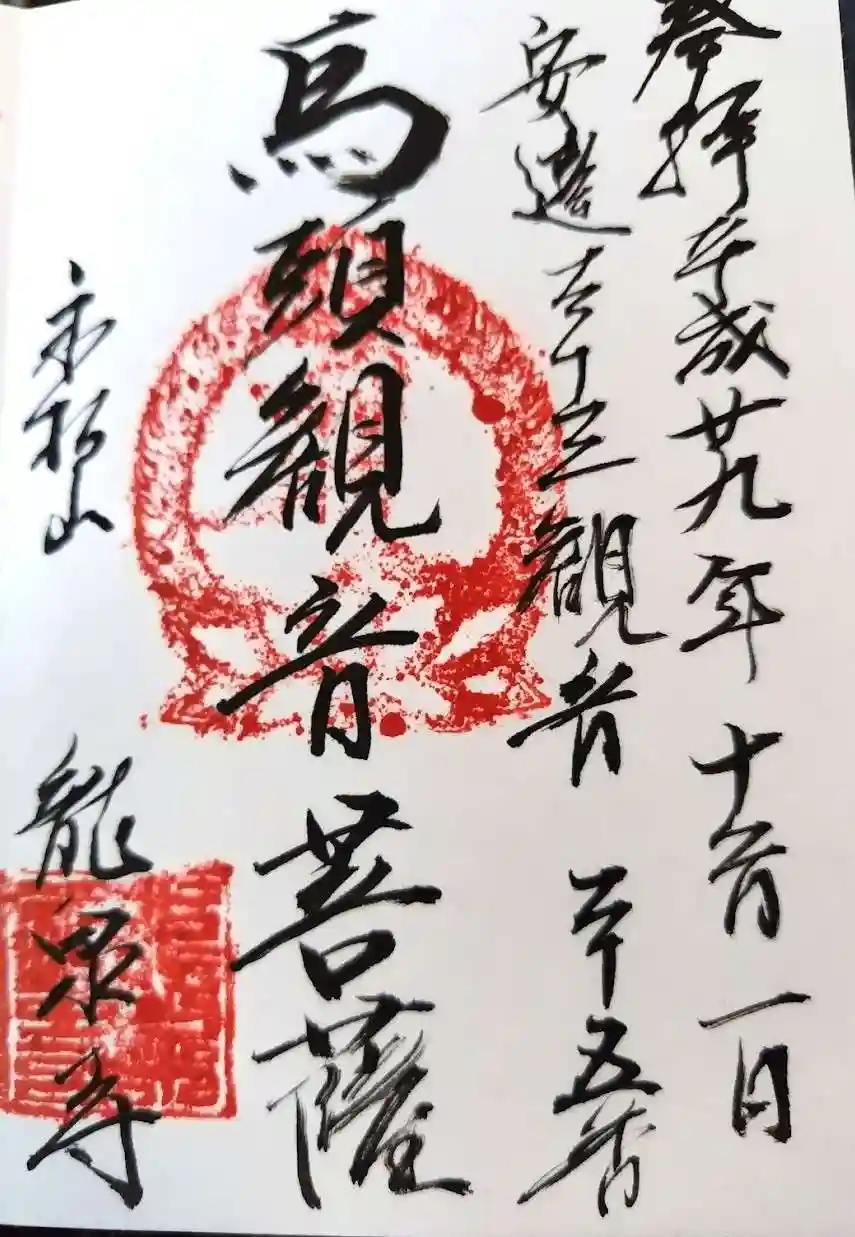 奉拝 平成廿九年 十月一日
安達三十三観音 二十五番
馬頭観音菩薩
永松山 龍泉寺